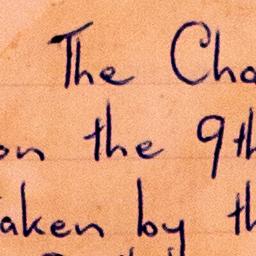 The Cha
on the 9th
taken by th